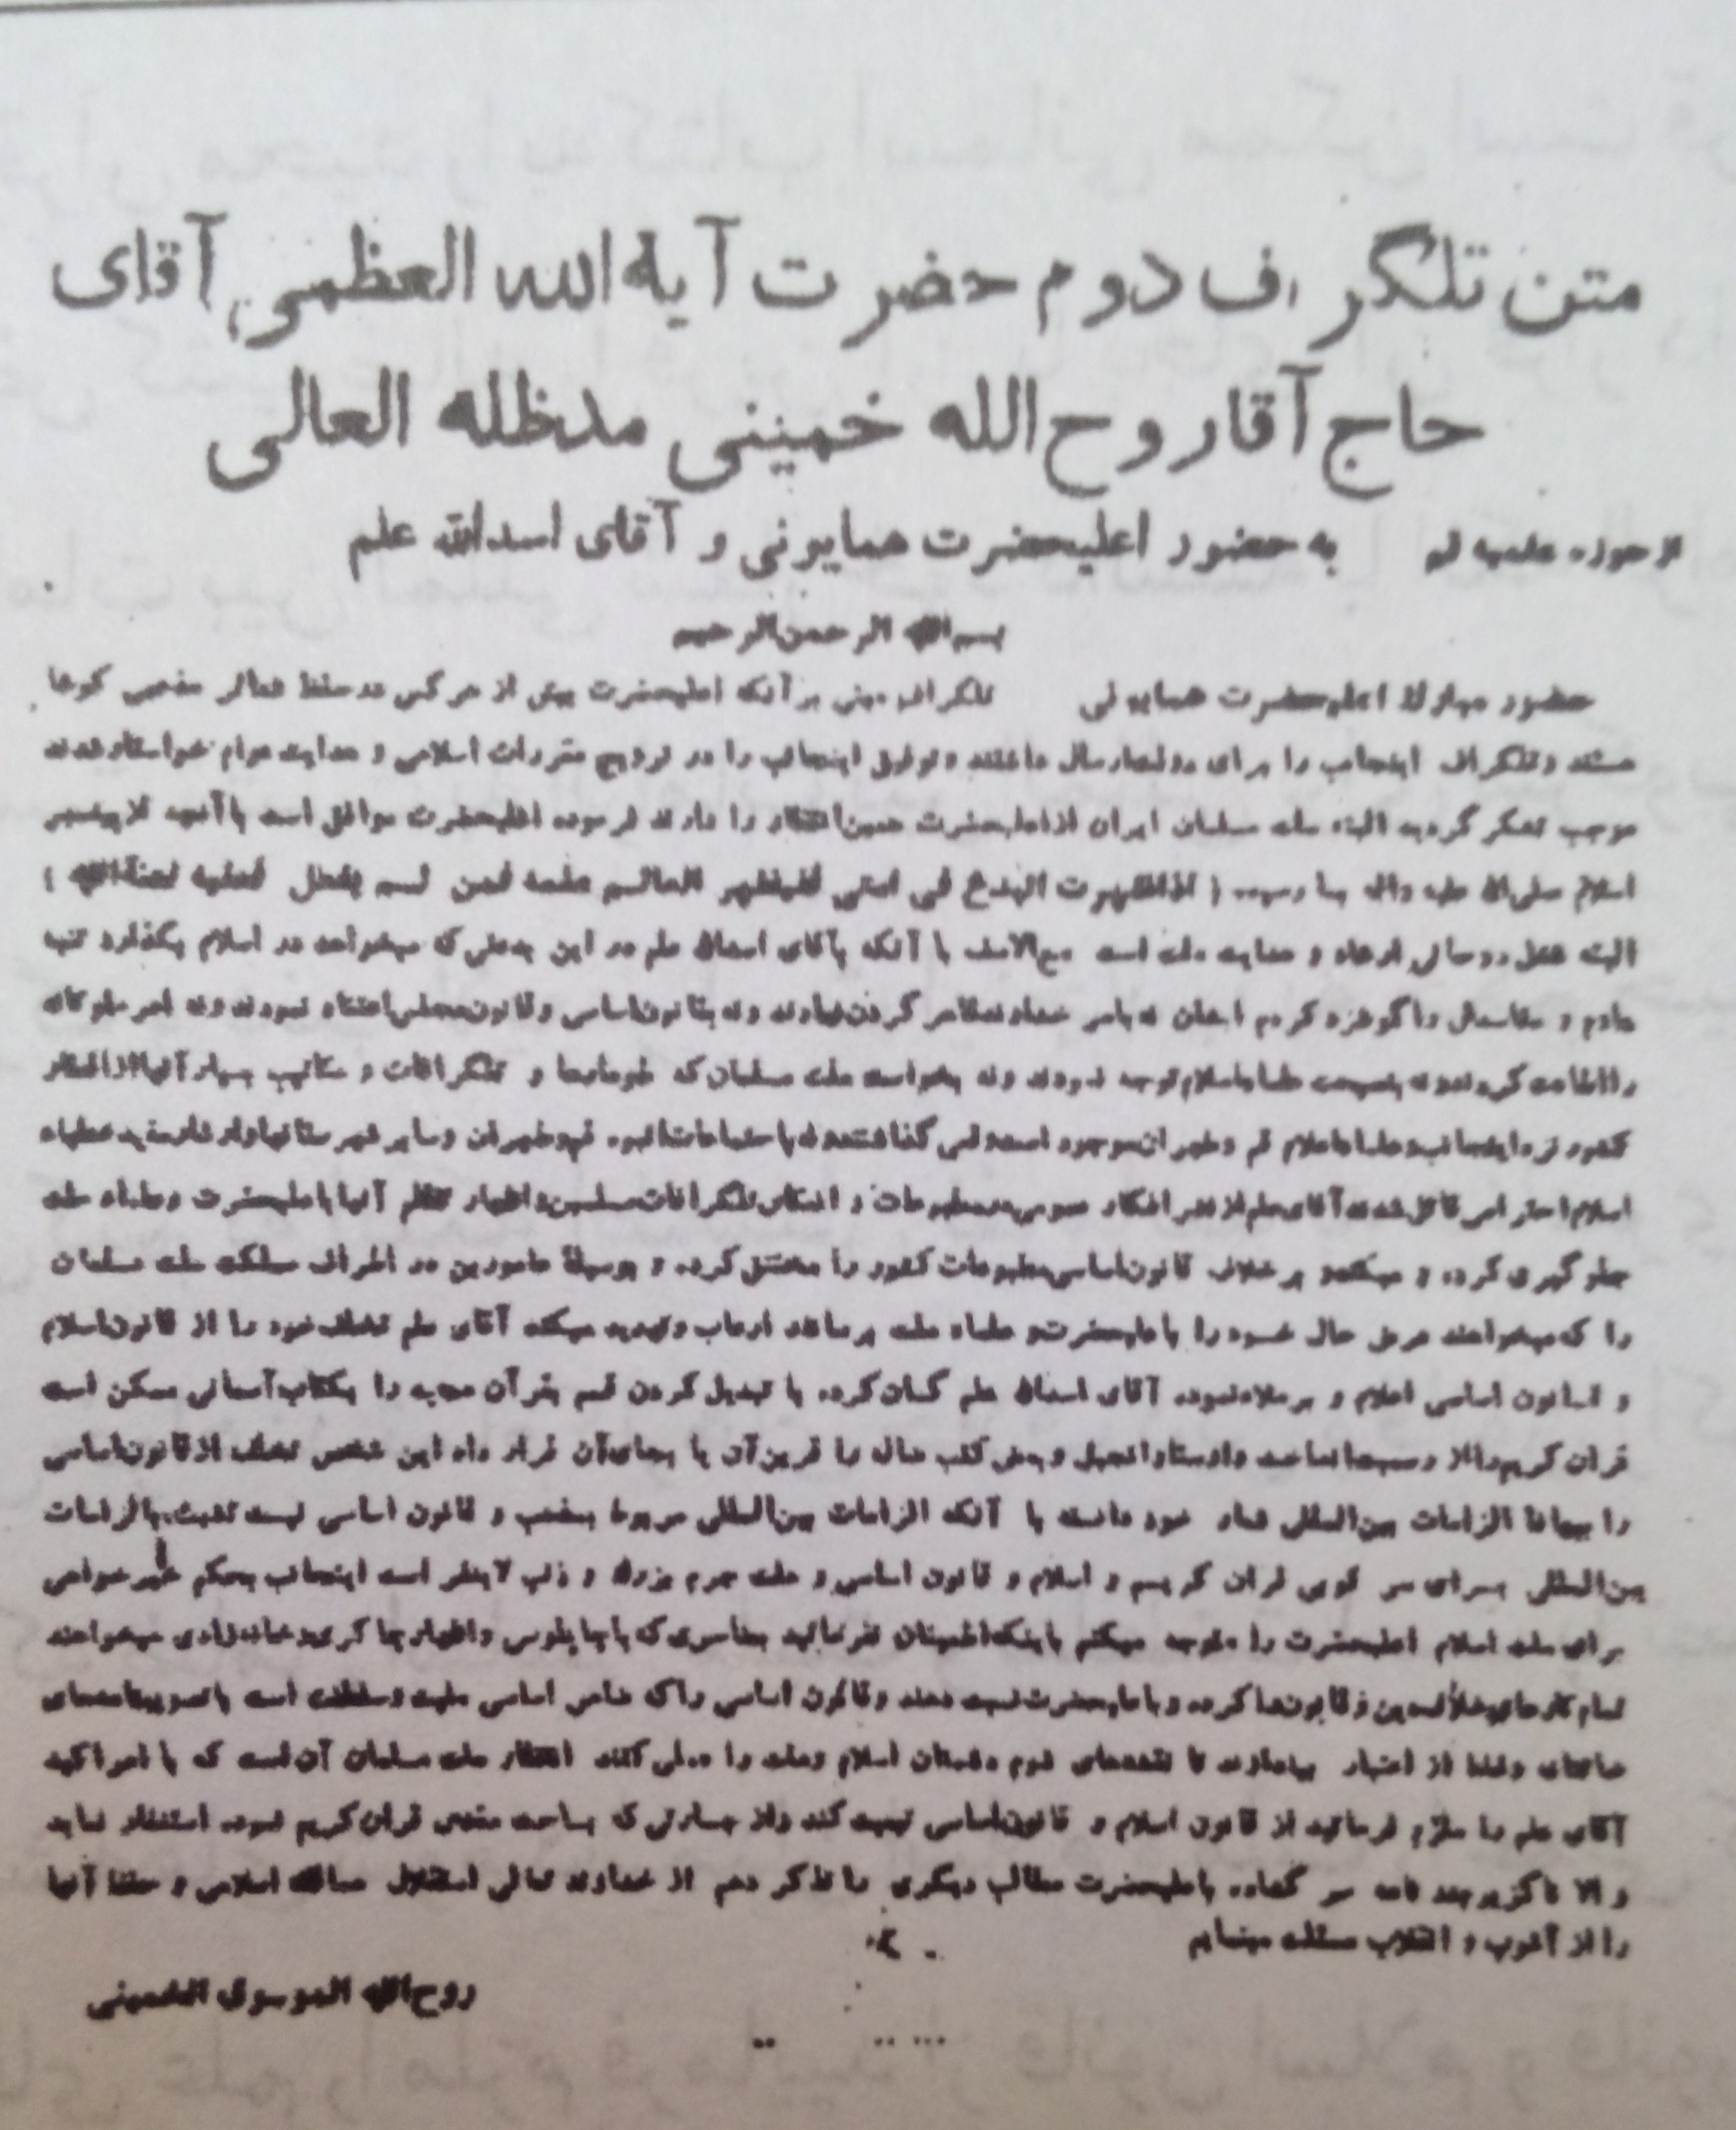 متن تلگراف دوم حضرت آیة الله العظمی آقای
حاج آقا روح الله خمینی مدظله العالی
از حوزه علمیه قم به حضور اعلیحضرت همایونی و آقای اسدالله علم
بسم الله الرحمن الرحیم
حضور مبارك اعلیحضرت همایونی تلگراف مبنی بر آنکه اعلیحضرت بیش از هر کس در حفظ شعائر مذهبی کوشا
هستند و تلگراف اینجانب را برای دولت ارسال داشتند و توفیق اینجانب را در ترویج مقررات اسلامی و هدایت عوام خواستار شدند
موجب تشکر گردید البته ملت مسلمان ایران از اعلیحضرت همین انتظار را دارند فرموده اعلیحضرت موافق است با آنچه از پیغمبر
اسلام صلی الله علیه واله بما رسیده ( اذا ظهرت البدع فی امتی فلیظهر العالم علمه فمن لم یفعل فعلیه لعنة الله )
البته شغل روحانی ارشاد و هدایت ملت است مع الاسف با آنکه بآقای اسدالله علم در این بدعتی که میخواهد در اسلام بگذارد تنبه
دادم و مفاسدش را گوشزد کردم ایشان نه بامر خداوند قاهر گردن نهادند و نه بقانون اساسی و قانون مجلس اعتناء نمودند و نه امر ملوکانه
را اطاعت کردند و نه بنصیحت علماء اسلام توجه نمودند و نه بخواست ملت مسلمان که طومارها و تلگرافات و مکاتیب بسیار آنها از اقطار
کشور نزد اینجانب و علماء اعلام قم و طهران موجود است وقعی گذاشتند و نه باجتماعات انبوه قم و طهران و سایر شهرستانها و ارشاد مفید خطباء
اسلام احترامی قائل شدند آقای علم از نشر افکار عمومی در مطبوعات و انعکاس تلگرافات مسلمین و اظهار تظلم آنها باعلیحضرت و علماء ملت
جلوگیری کرده و میکند و بر خلاف قانون اساسی مطبوعات کشور را مختنق کرده و بوسیلهٔ مامورین در اطراف مملکت ملت مسلمان
را که میخواهند عرض حال خود را باعلیحضرت و علماء ملت برسانند ارعاب و تهدید میکند آقای علم تخلف خود را از قانون اسلام
و قانون اساسی اعلام و برملا نموده آقای اسدالله علم گمان کرده با تبدیل کردن قسم بقرآن مجید را بکتاب آسمانی ممکن است
قران کریم را از رسمیت انداخت و اوستا و انجیل و بعض کتب ضاله را قرین آن یا بجای آن قرار داد این شخص تخلف از قانون اساسی
را ببهانهٔ الزامات بین المللی شعار خود دانسته با آنکه الزامات بین المللی مربوط بمذهب و قانون اساسی نیست تشبث بالزامات
بین المللی برای سرکوبی قران کریم و اسلام و قانون اساسی و ملت جرم بزرك و ذنب لایغفر است اینجانب بحکم خیرخواهی
برای ملت اسلام اعلیحضرت را متوجه میکنم باینکه اطمینان نفرمائید بعناصری که با چاپلوسی و اظهار چاکری و خانه زادی میخواهند
تمام کارهای خلاف دین و قانون را کرده و باعلیحضرت نسبت دهند و قانون اساسی را که ضامن اساسی ملیت و سلطنت است با تصویبنامه‌های
خائنانه و غلط از اعتبار بیندازند تا نقشه‌های شوم دشمنان اسلام و ملت را عملی کنند انتظار ملت مسلمان آن است که با امر اکید
آقای علم را ملزم فرمائید از قانون اسلام و قانون اساسی تبعیت کند و از جسارتی که بساحت مقدس قران کریم نموده استغفار نماید
و الا ناگزیرم در نامه سرگشاده باعلیحضرت مطالب دیگری را تذکر دهم از خداوند تعالی استقلال ممالك اسلامی و حفظ آنها
را از آشوب و انقلاب مسئلت مینمایم
روح الله الموسوی الخمینی